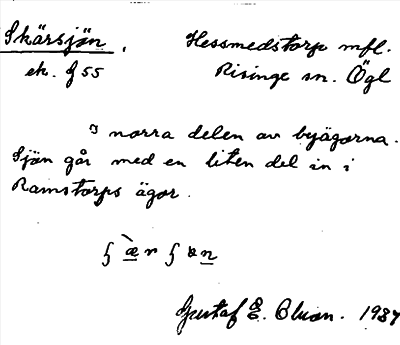 Skärsjön, Hessmedstorp mfl.
ek. f 55 Risinge sn. Ögl
I norra delen av byägorna.
Sjön går med en liten del in i
Ramstorps ägor.
Gustaf E. Bluon. 1937